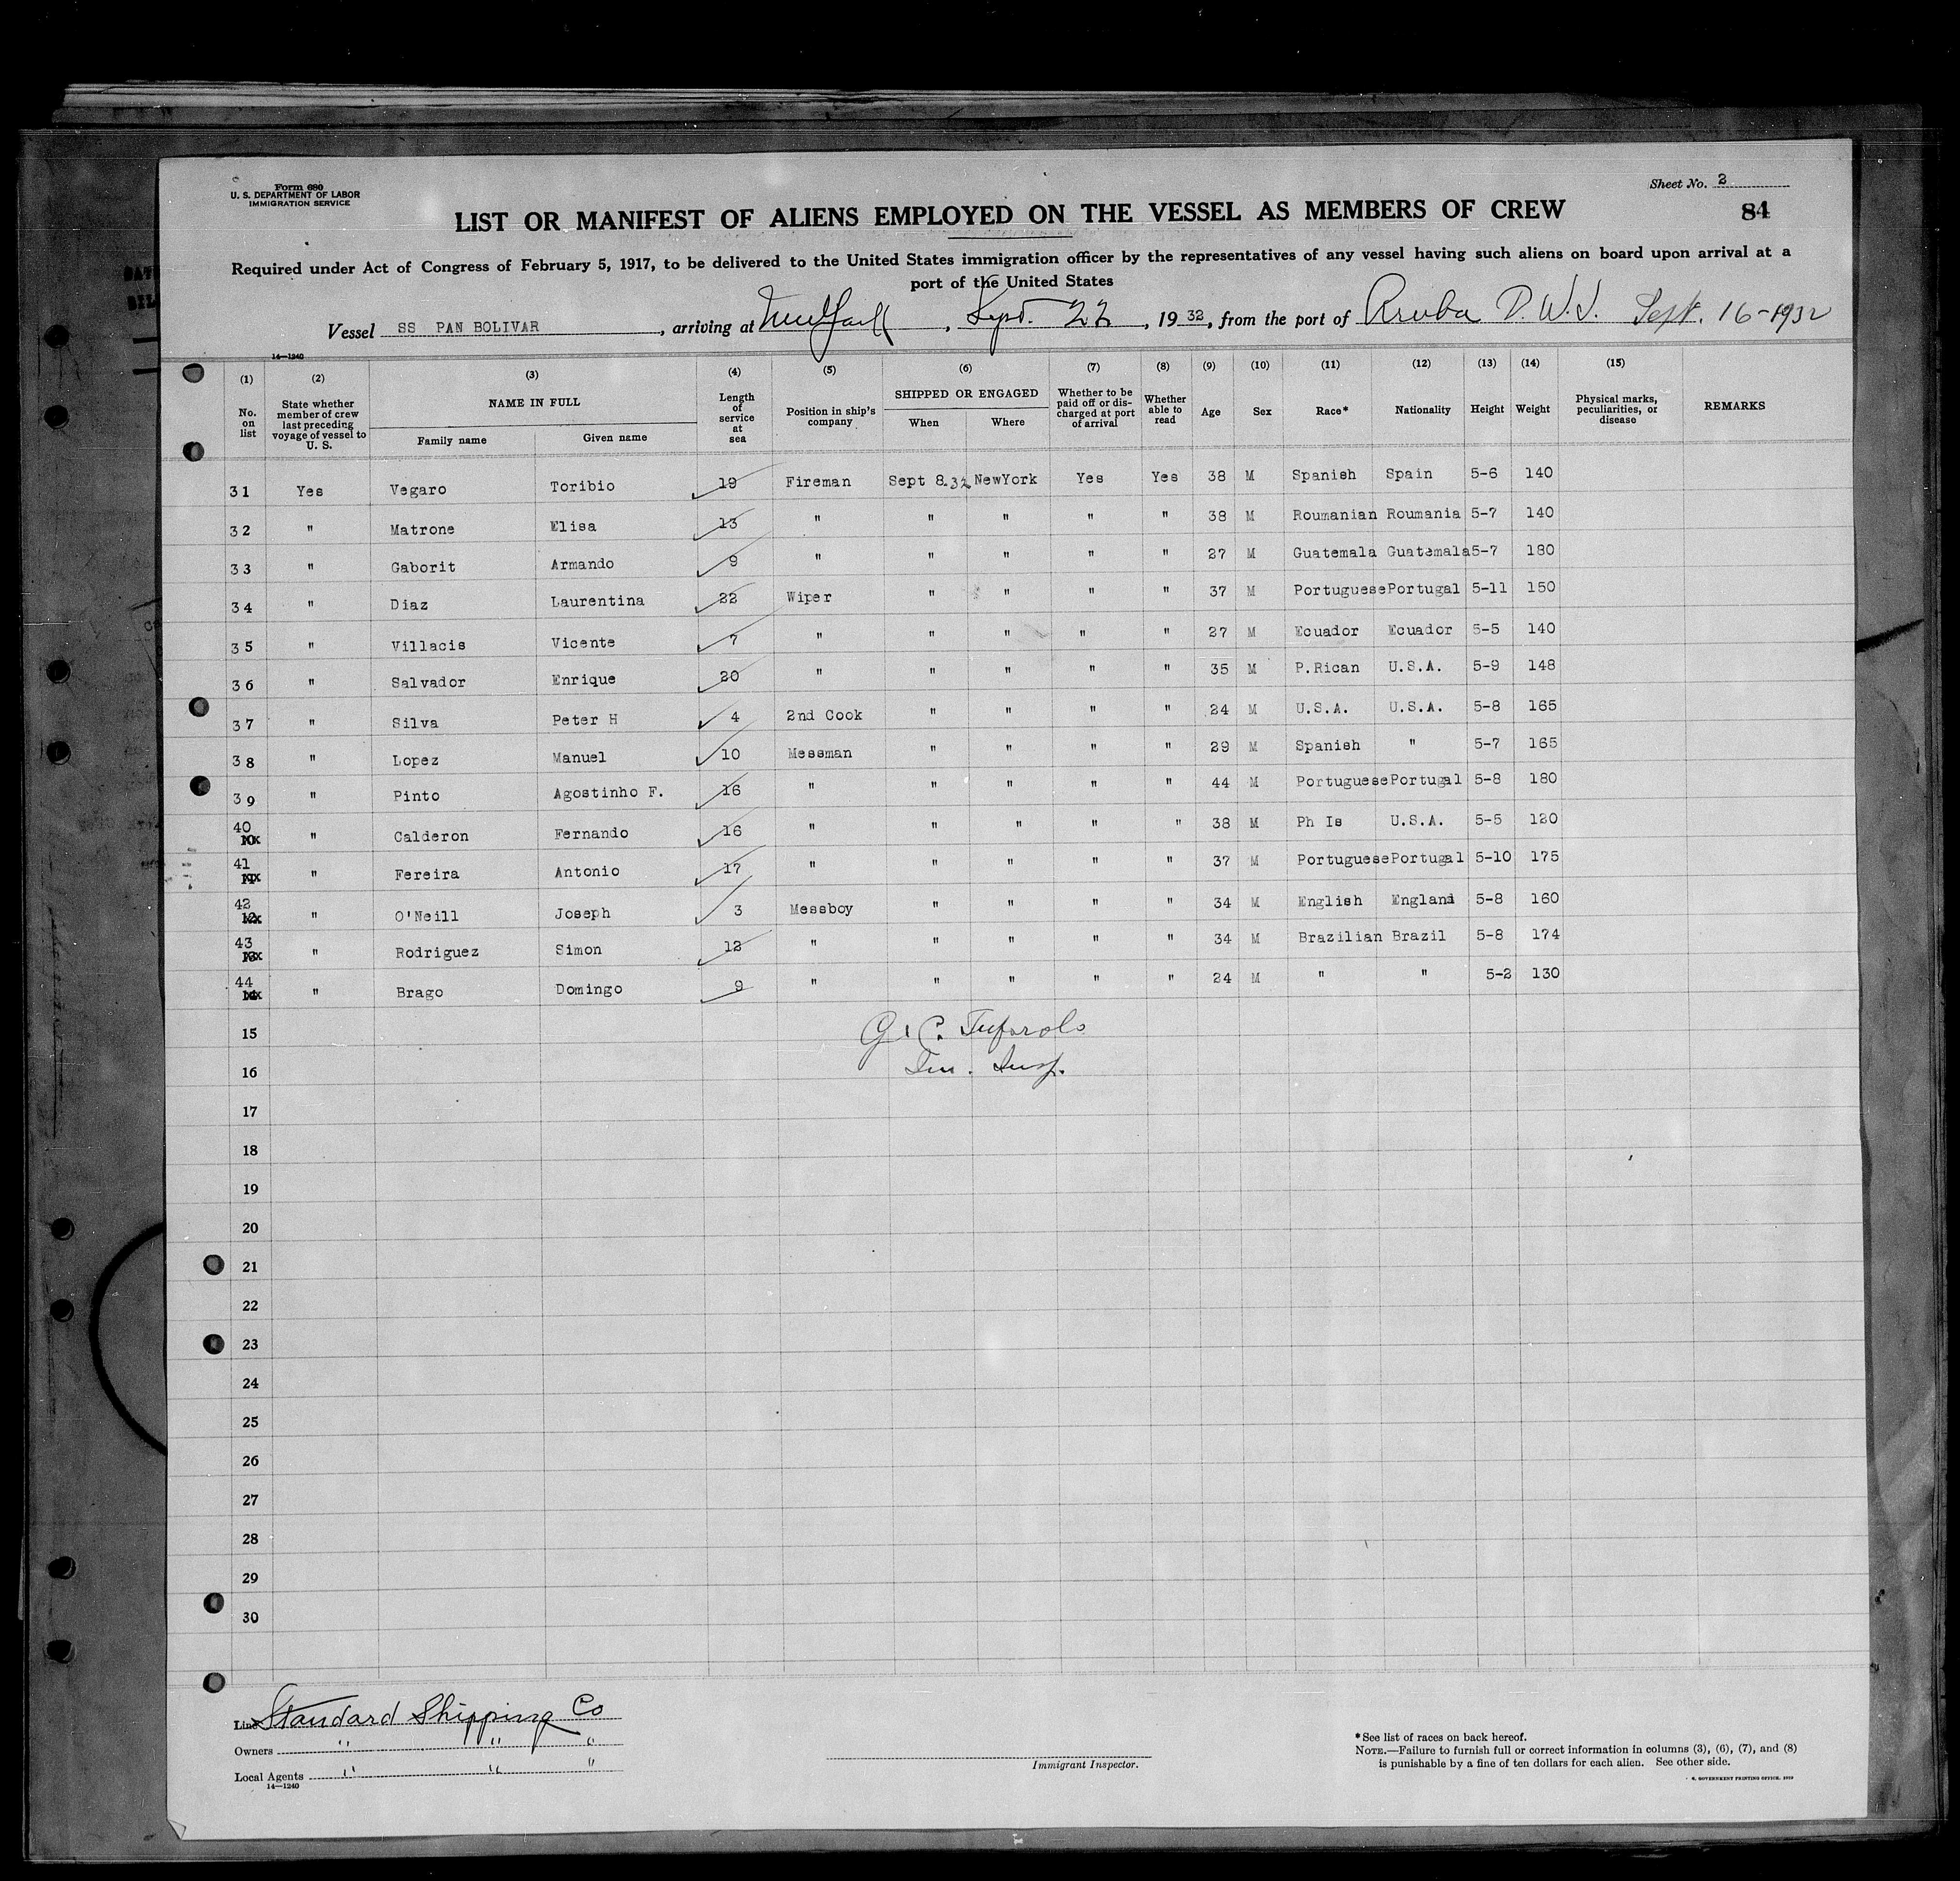 Form 680
U. S. DEPARTMENT OF LABOR
IMMIGRATION SERVICE
Sheet No. 2
84
LIST OR MANIFEST OF ALIENS EMPLOYED ON THE VESSEL AS MEMBERS OF CREW
Required under Act of Congress of February 5, 1917, to be delivered to the United States immigration officer by the representatives of any vessel having such aliens on board upon arrival at a
port of the United States
Vessel SS PAN BOLIVAR, arriving at New York, Sept. 22, 1932, from the port of Aruba D.W.I. Sept. 16-1932
14—1240
(1) (2) (3) (4) (5) (6) (7) (8) (9) (10) (11) (12) (13) (14) (15)
No. on list State whether member of crew last preceding voyage of vessel to U. S. NAME IN FULL Family name Given name Length of service at sea Position in ship's company SHIPPED OR ENGAGED When Where Whether to be paid off or discharged at port of arrival Whether able to read Age Sex Race* Nationality Height Weight Physical marks, peculiarities, or disease REMARKS
31 Yes Vegaro Toribio 19 Fireman Sept 8.32 NewYork Yes Yes 38 M Spanish Spain 5-6 140
32 " Matrone Elisa 13 " " " " " 38 M Roumanian Roumania 5-7 140
33 " Gaborit Armando 9 " " " " " 27 M Guatemala Guatemala 5-7 180
34 " Diaz Laurentina 22 Wiper " " " " 37 M Portuguese Portugal 5-11 150
35 " Villacis Vicente 7 " " " " " 27 M Ecuador Ecuador 5-5 140
36 " Salvador Enrique 20 " " " " " 35 M P.Rican U.S.A. 5-9 148
37 " Silva Peter H 4 2nd Cook " " " " 24 M U.S.A. U.S.A. 5-8 165
38 " Lopez Manuel 10 Messman " " " " 29 M Spanish " 5-7 165
39 " Pinto Agostinho F. 16 " " " " " 44 M Portuguese Portugal 5-8 180
40 " Calderon Fernando 16 " " " " " 38 M Ph Is U.S.A. 5-5 120
41 " Fereira Antonio 17 " " " " " 37 M Portuguese Portugal 5-10 175
42 " O'Neill Joseph 3 Messboy " " " " 34 M English England 5-8 160
43 " Rodriguez Simon 12 " " " " " 34 M Brazilian Brazil 5-8 174
44 " Brago Domingo 9 " " " " " 24 M " " 5-2 130
15
16 Im. Insp.
17
18
19
20
21
22
23
24
25
26
27
28
29
30
Line Standard Shipping Co
Owners " " "
Local Agents " " "
14—1240
Immigrant Inspector.
*See list of races on back hereof.
NOTE.—Failure to furnish full or correct information in columns (3), (6), (7), and (8)
is punishable by a fine of ten dollars for each alien. See other side.